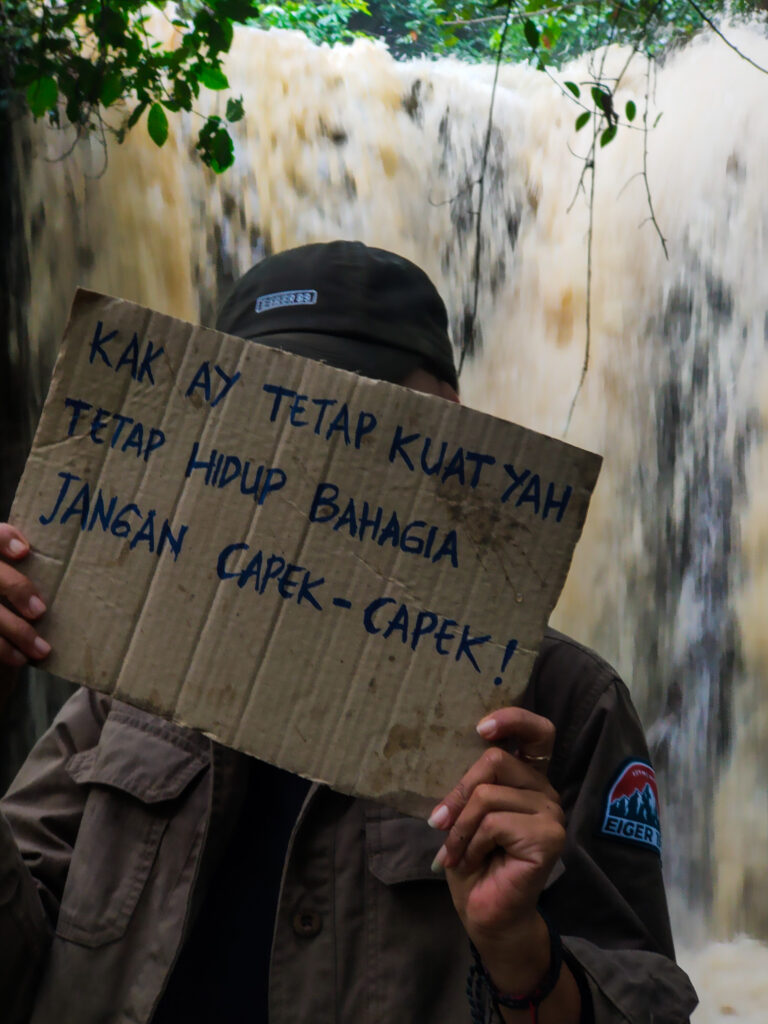 KAK AY TETAP KUAT YAH
TETAP HIDUP BAHAGIA
JANGAN CAPEK-CAPEK!
EIGER